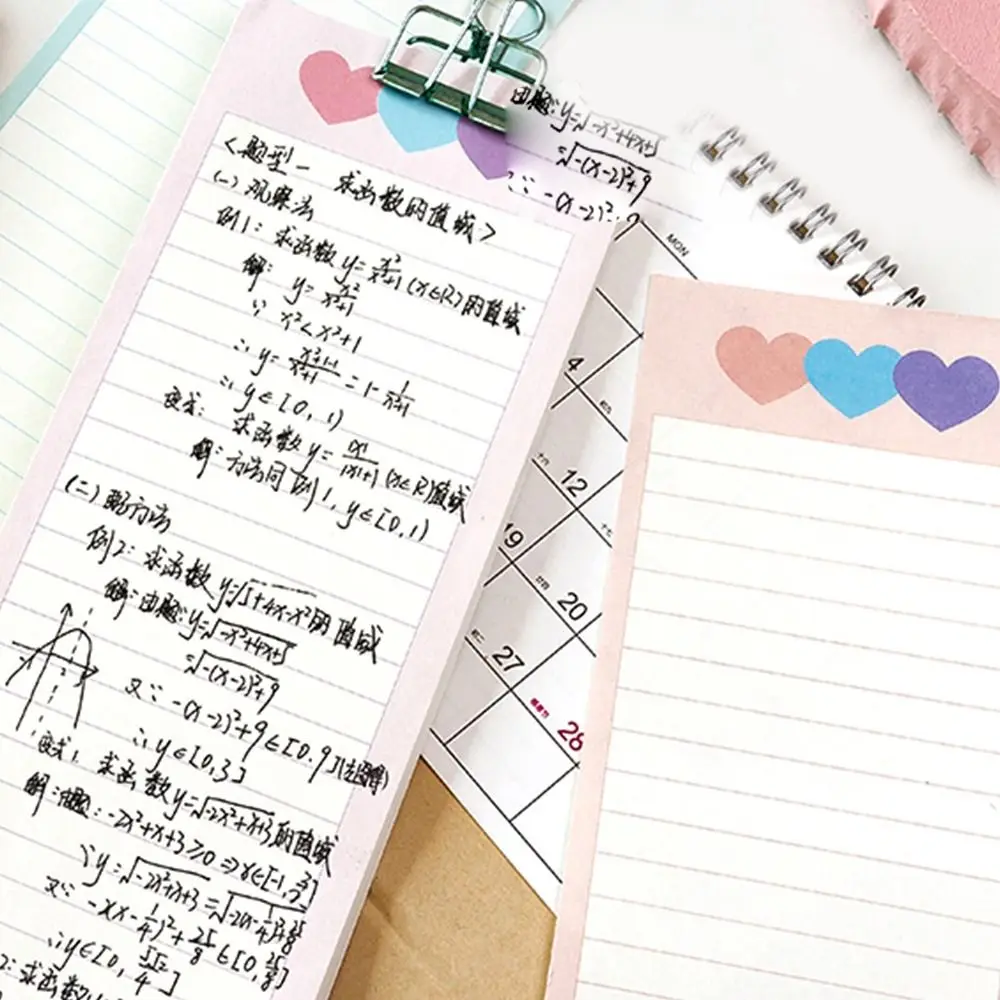 <题型一 求函数的值域>
(一) 观察法
例1: 求函数 y=x²/x²+1 (x∈R)的值域
解: y=x²/x²+1
∵ x²<x²+1
∴ y=x²+1-1/x²+1=1-1/x²+1
∴ y∈[0,1)
变式: 求函数 y=|x|/|x|+1 (x∈R)值域
解: 方法同例1, y∈[0,1)
(二) 配方法
例2: 求函数 y=√5+4x-x² 的值域
解: 由题: y=√-x²+4x+5
=√-(x-2)²+9
又∵ -(x-2)²+9∈[0,9](左图解)
∴ y∈[0,3]
变式1: 求函数 y=√-2x²+x+3 的值域
解: 由题: -2x²+x+3≥0 ⇒ x∈[-1,3/2]
∵ y=√-2x²+x+3=√-2(x-1/4)²+25/8
又∵ -2(x-1/4)²+25/8∈[0,25/8]
∴ y∈[0,5√2/4]
2: 求函数
由题: y=√-x²+4x+5
=√-(x-2)²+9
∵ -(x-2)²+9
MON
4
12
19
20
27
28